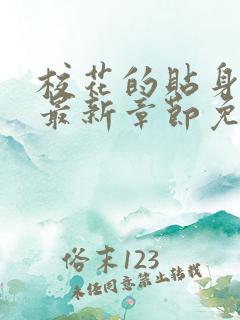 校花的贴身
最新章节免
俗末123
未经同意禁止转载